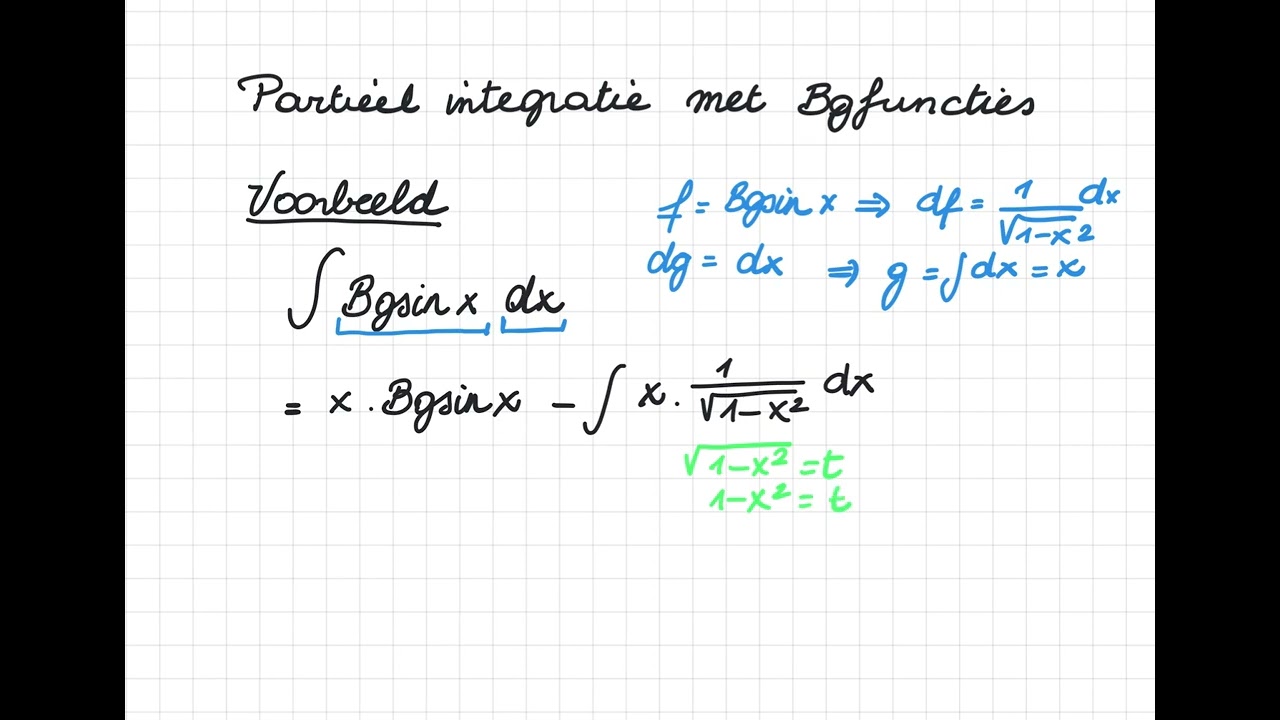 Partiëel integratie met Bgfuncties
Voorbeeld
f = Bgsin x ⇒ df = 1/√(1-x²) dx
dg = dx ⇒ g = ∫dx = x
∫ Bgsin x dx
= x . Bgsin x - ∫ x . 1/√(1-x²) dx
√(1-x²) = t
1-x² = t